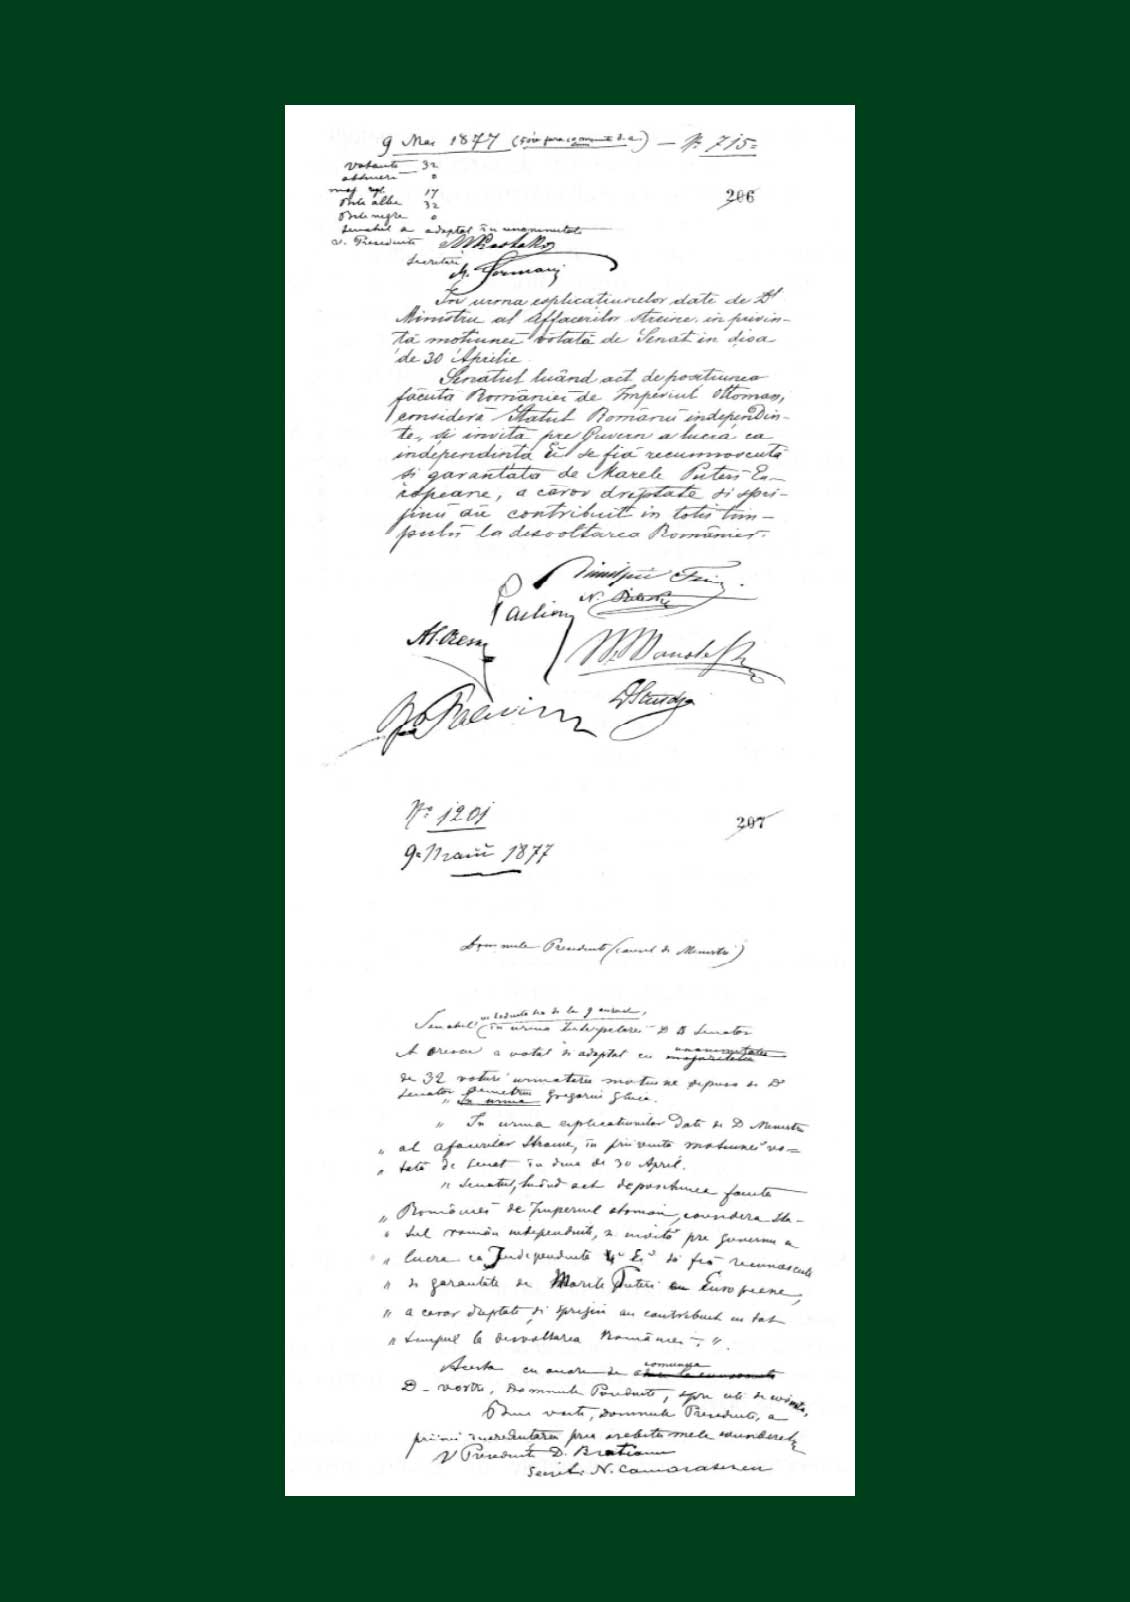 9 Mai 1877 — No. 715
votanti 32
abtineri 0
maj. 17
Bile albe 32
Bile negre 0
Senatul a adoptat in unanimitate
v. Presedinte
Secretari
206
In urma esplicatiunelor date de Dl
Ministru al Affacerilor streine, in privin-
ta motiunei votată de Senat in disa
de 30 Aprilie
Senatul luând act de positiunea
făcuta României de Imperiul Ottoman,
consideră Statul Românu independin-
te, si invita pre Guvern a lucra ca
independinta Ei se fiă recunnoscută
si garantata de Marele Puteri Eu-
ropeane, a căror dreptate si spri-
jinu au contribuit in totu tim-
pulu la desvoltarea Românier.
DSturdza
No. 1201
207
9 Maiu 1877
Domnule Presedinte (Consil de Ministri)
Senatul in sedinta sa de la 9 curent,
in urma Interpelarei D D Senator
a votat si adoptat cu unanimitate majoritatea
de 32 voturi urmatorea motiune depusa de D
Senator Demetru Gregoriu Ghica.
" In urma
" In urma esplicatiunilor date de D Ministru
" al afacerilor straine, in privinta motiunei vo=
" tată de Senat in diua de 30 April.
" Senatul, luând act de positiunea facuta
" României de Imperiul otoman, considera Sta-
" tul român independinte, si invită pre guvernu a
" lucra ca Independinta Ei să fiă recunoscută
" si garantate de Marile Puteri Europeane,
" a caror dreptate si sprijin au contribuit in tot
" timpul la desvoltarea României. "
Acesta cu onore de a comunica
D-vostre, Domnule Presedinte, spre cele de cuvinta,
Bine voiti, domnule Presedinte, a
primi incredintarea prea osebitei mele consideratii
V Presedinte D. Bratianu
Secret. N. Camarasescu